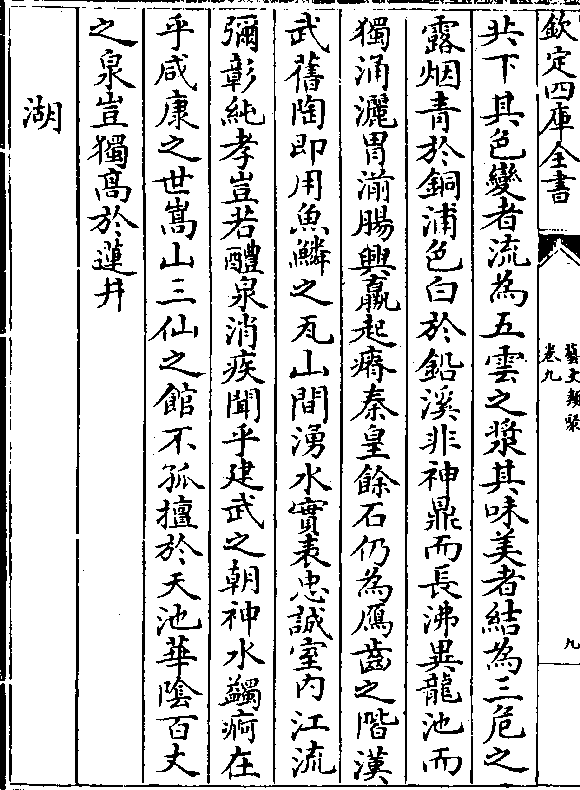 欽定四庫全書
藝文類聚
卷九
九
其下其色變者流為五雲之漿其味美者結為三危之
露烟青於銅浦色白於鉛溪非神鼎而長沸異龍池而
獨涌灑胃湔腸興羸起瘠秦皇餘石仍為鴈齒之階漢
武舊陶即用魚鱗之瓦山間湧水實表忠誠室内江流
彌彰純孝豈若醴泉消疾聞乎建武之朝神水蠲痾在
乎咸康之世嵩山三仙之館不孤擅於天池華陰百丈
之泉豈獨髙於蓮井
湖